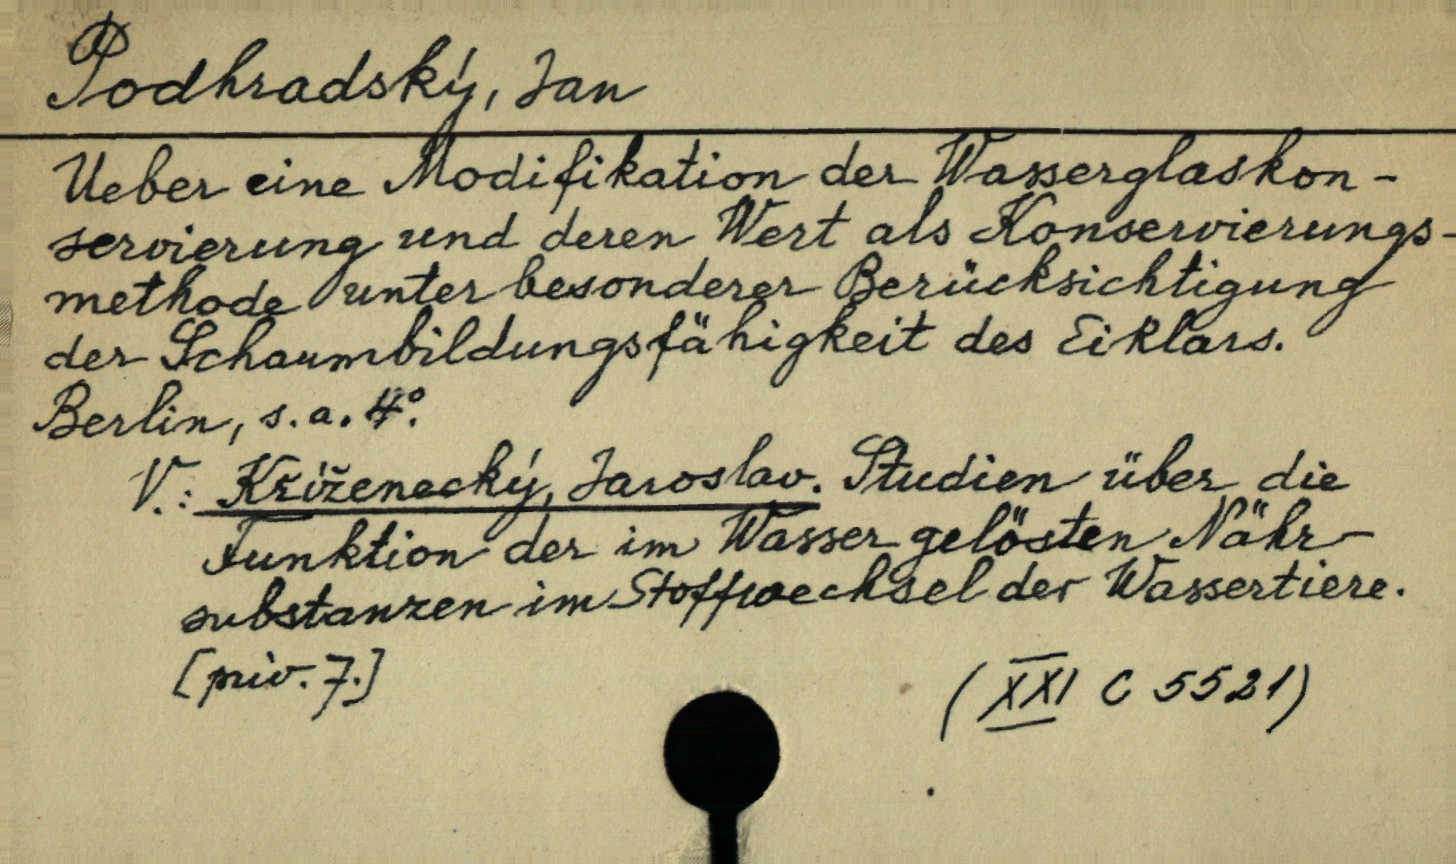 Podhradský, Jan
Ueber eine Modifikation der Wasserglaskon-
servierung und deren Wert als Konservierungs-
methode unter besonderer Berücksichtigung
der Schaumbildungsfähigkeit des Eiklars.
Berlin, s. a. 4°.
V.: Kříženecký, Jaroslav. Studien über die
Funktion der im Wasser gelösten Nähr-
substanzen im Stoffwechsel der Wassertiere.
[priv. 7.]
(XXI C 5521)